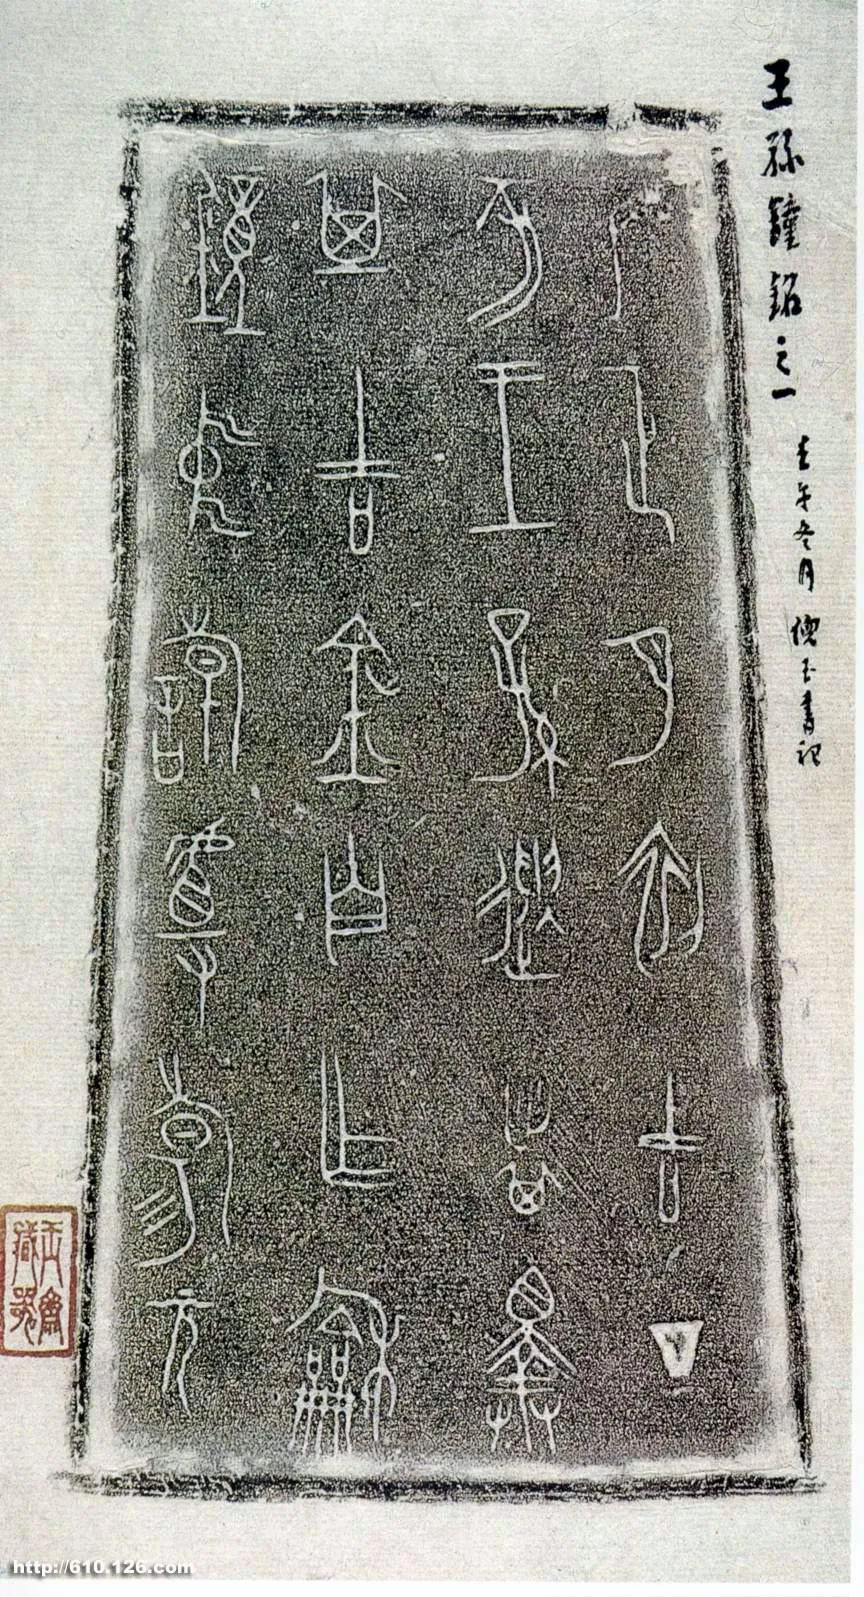 王孫鐘銘之一
壬午冬月
隹正月初吉丁
亥王孫遺者擇
其吉金自乍龢
鐘中翰虘昜元
http://610.126.com